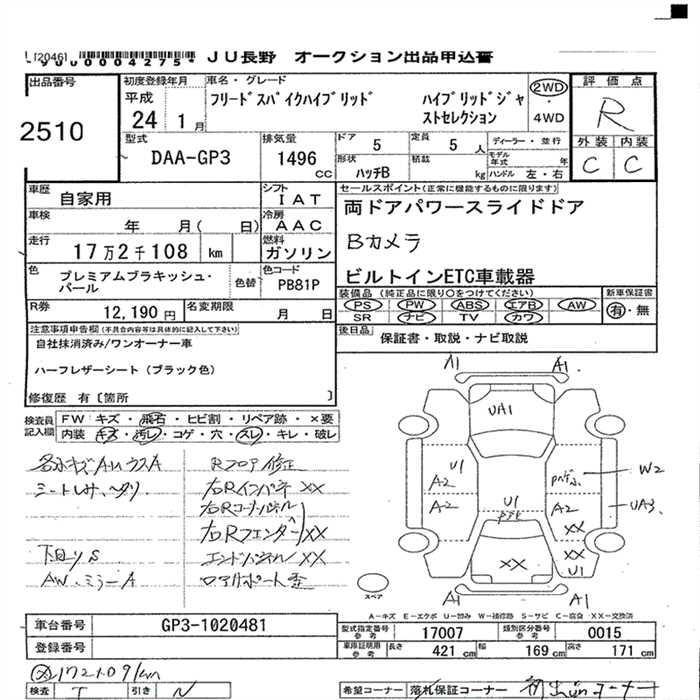 [2046]
*9000004275* JU長野 オークション出品申込書
出品番号
2510
初度登録年月
平成
24 1月
車名・グレード
フリードスパイクハイブリッド ハイブリッドジャストセレクション
2WD
・
4WD
評価点
R
型式
DAA-GP3
排気量
1496
CC
ドア
5
定員
5 人
形状
ハッチB
積載
kg
ディーラー・並行
モデル年式 年
ハンドル 左・右
外装 内装
C C
車歴
自家用
シフト
IAT
車検
年 月( 日)
冷房
AAC
走行
17万2千108 km
燃料
ガソリン
色
プレミアムブラキッシュ・パール
色替
色コード
PB81P
R券
12,190円
名変期限
月 日
セールスポイント(正常に機能するものに限ります)
両ドアパワースライドドア
Bカメラ
ビルトインETC車載器
装備品 (純正品に限り○をつけてください)
PS PW ABS エアB AW
SR ナビ TV カワ
新車保証書
有・無
後日品
保証書・取説・ナビ取説
注意事項申告欄(不具合内容等は具体的に記入して下さい)
自社抹消済み/ワンオーナー車
ハーフレザーシート(ブラック色)
修復歴 有〔箇所 〕
検査員記入欄
FW キズ・飛石・ヒビ割・リペア跡・×要
内装 キズ・汚レ・コゲ・穴・スレ・キレ・破レ
Rフロア修正
右Rインパネ XX
右Rコーナーパネル
右Rフェンダー XX
エンドパネル XX
下回りS
AW、ミラーA
A1 A1
UA1
U1
A2
A2
U1
A2
W2
UA3
XX
XX
U1
XX
A1 A1
スペア
A-キズ E-エクボ U-凹み W-補修跡 S-サビ C-腐食 XX-交換済
車台番号
GP3-1020481
登録番号
型式指定番号参考
17007
類別区分番号参考
0015
車庫証明用参考
長さ 421 cm
幅 169 cm
高さ 171 cm
172109km
検査
引き
希望コーナー
落札保証コーナー